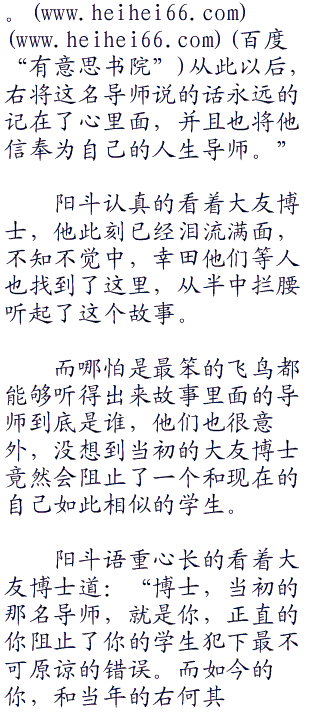 。(www.heihei66.com)
(www.heihei66.com)(百度
“有意思书院”)从此以后，
右将这名导师说的话永远的
记在了心里面，并且也将他
信奉为自己的人生导师。”
阳斗认真的看着大友博
士，他此刻已经泪流满面，
不知不觉中，幸田他们等人
也找到了这里，从半中拦腰
听起了这个故事。
而哪怕是最笨的飞鸟都
能够听得出来故事里面的导
师到底是谁，他们也很意
外，没想到当初的大友博士
竟然会阻止了一个和现在的
自己如此相似的学生。
阳斗语重心长的看着大
友博士道：“博士，当初的
那名导师，就是你，正直的
你阻止了你的学生犯下最不
可原谅的错误。而如今的
你，和当年的右何其